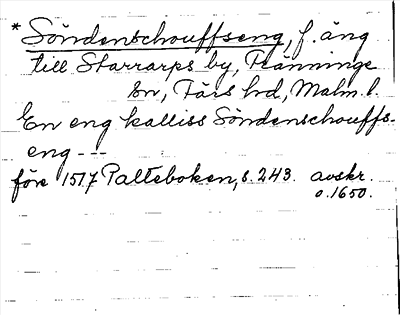 * Söndenschouffseng, f. äng
till Starrarps by, Ränninge
sn, Färs hd, Malm. l.
En eng kalliss Söndenschouffs-
eng ---
före 1517 Palteboken, s. 243. avskr.
o. 1650.